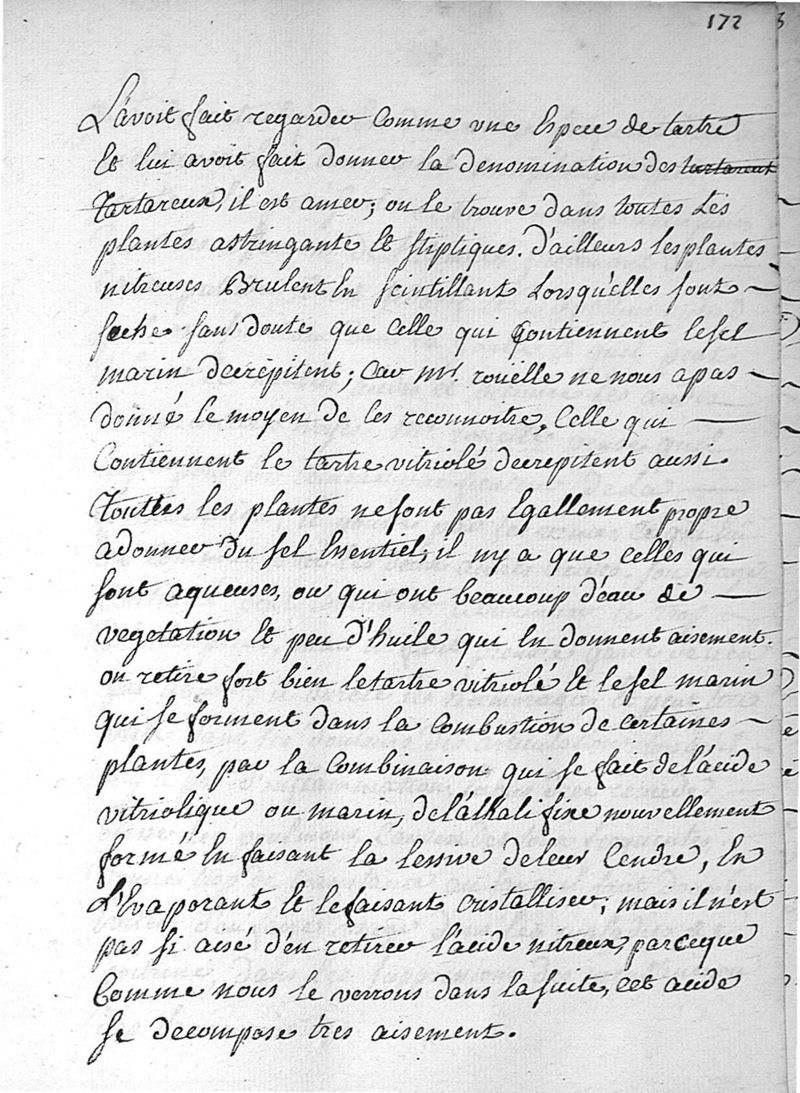 172
L'avoit fait regarder Comme vne Espece de tartre
Et lui avoit fait donner la denomination des tartareux
Tartareux, il est amer; on le trouve dans toutes Les
plantes astringante Et stiptiques. D'ailleurs les plantes
nitreuses Brulent En scintillant Lorsqu'elles sont
seche sans doute que Celle qui Contiennent le sel
marin decrépitent; Car Mr. rouëlle ne nous a pas
donné le moyen de les reconnoitre, Celle qui
Contiennent le tartre vitriolé decrepitent aussi.
Touttes les plantes ne sont pas Egallement propre
a donner du sel Essentiel, il ny a que celles qui
sont aqueuses, ou qui ont beaucoup d'eau de
vegetation Et peu d'huile qui En donnent aisement.
on retire fort bien le tartre vitriolé Et le sel marin
qui se forment dans la Combustion de certaines
plantes, par la Combinaison qui se fait de l'acide
vitriolique ou marin, de l'alkali fixe nouvellement
formé En faisant la Lessive de leur Cendre, En
L'Evaporant Et le faisant cristalliser; mais il n'est
pas si aisé d'en retirer l'acide nitreux, parceque
Comme nous le verrons dans la suite, cet acide
se decompose tres aisement.